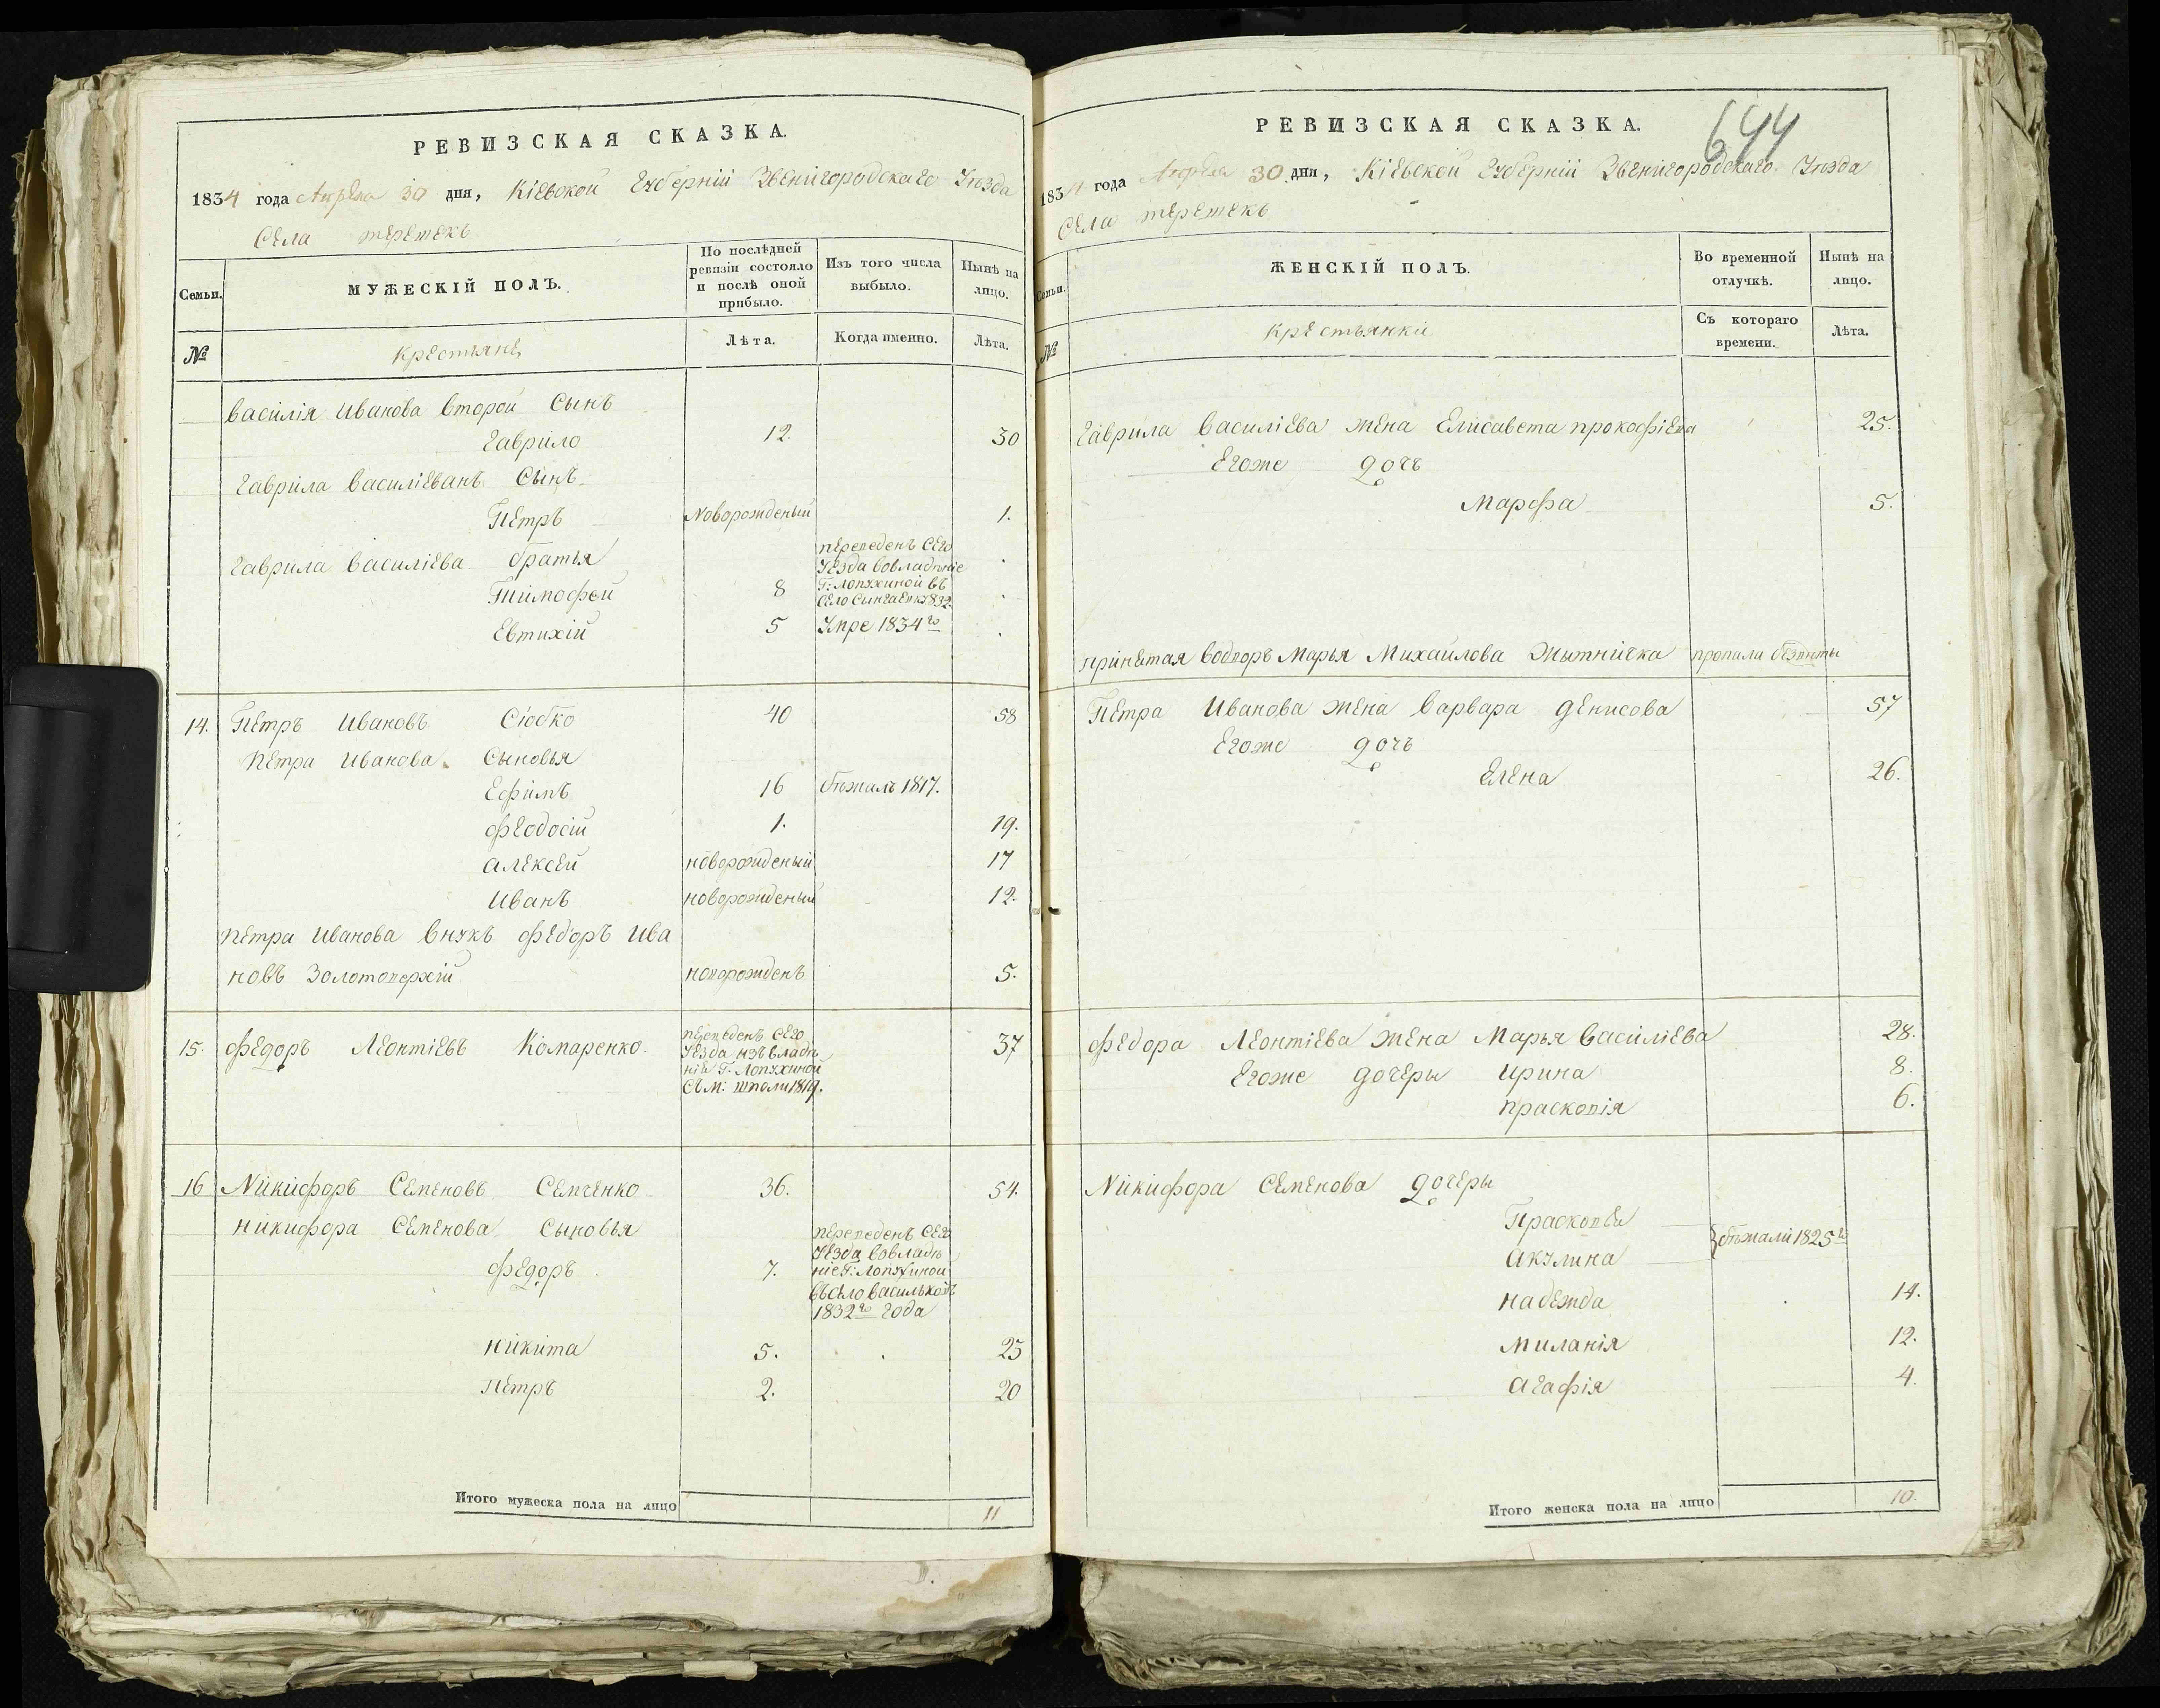 РЕВИЗСКАЯ СКАЗКА.
1834 года Апреля 30 дня, Кіевской Губерніи Звенигородскаго Уезда
Села Терешекъ
Семьи.
МУЖЕСКІЙ ПОЛЪ.
По послѣдней ревизіи состояло и послѣ оной прибыло.
Изъ того числа выбыло.
Нынѣ на лицо.
№
Крестьяне
Лѣта.
Когда именно.
Лѣта.
Василія Иванова второй Сынъ
Гаврило 12. 30
Гаврила Василіеванъ Сынъ
Петръ Новорожденый 1.
Гаврила Василіева братья
Тимофей 8 переведенъ Сего Уезда вовладѣніе Г: Лопухиной въ Село 1832.
Евтихій 5 Умре 1834го
14. Петръ Ивановъ Сюбко 40 58
Петра Иванова Сыновья
Ефимъ 16 бѣжалъ 1817.
Феодосій 1. 19.
Алексей новорожденый 17
Иванъ новорожденый 12.
Петра Иванова внукъ Федоръ Ива
новъ Золотоверхій новорожденъ 5.
15. Федоръ Леонтіевъ Комаренко. переведенъ Сего Уезда изъ владѣнія Г: Лопухиной Съ М: Шполи 1819. 37
16 Никифоръ Семеновъ Семченко 36. 54.
Никифора Семенова Сыновья
Федоръ 7. переведенъ Сего Уезда вовладѣніе Г: Лопухиной въ село Васильковъ 1832го года
Никита 5. 23
Петръ 2. 20
Итого мужеска пола на лицо 11
644
РЕВИЗСКАЯ СКАЗКА.
1834 года Апреля 30 дня, Кіевской Губерніи Звенигородскаго Уезда
Села Терешекъ
Семьи.
ЖЕНСКІЙ ПОЛЪ.
Во временной отлучкѣ.
Нынѣ на лицо.
№
Крестьянки
Съ котораго времени.
Лѣта.
Гаврила Василіева жена Елисавета Прокофіева 25.
Егоже дочь
Марфа 5.
Принятая водворъ Марья Михайлова Жытничка пропала безвиты
Петра Иванова жена Варвара Денисова 57
Егоже дочь
Елена 26.
Федора Леонтіева жена Марья Василіева 28.
Егоже дочеры Ирина 8.
Прасковія 6.
Никифора Семенова дочеры
Прасковея
Акулина бѣжали 1825го
Надежда 14.
Миланія 12.
Агафія 4.
Итого женска пола на лицо 10.